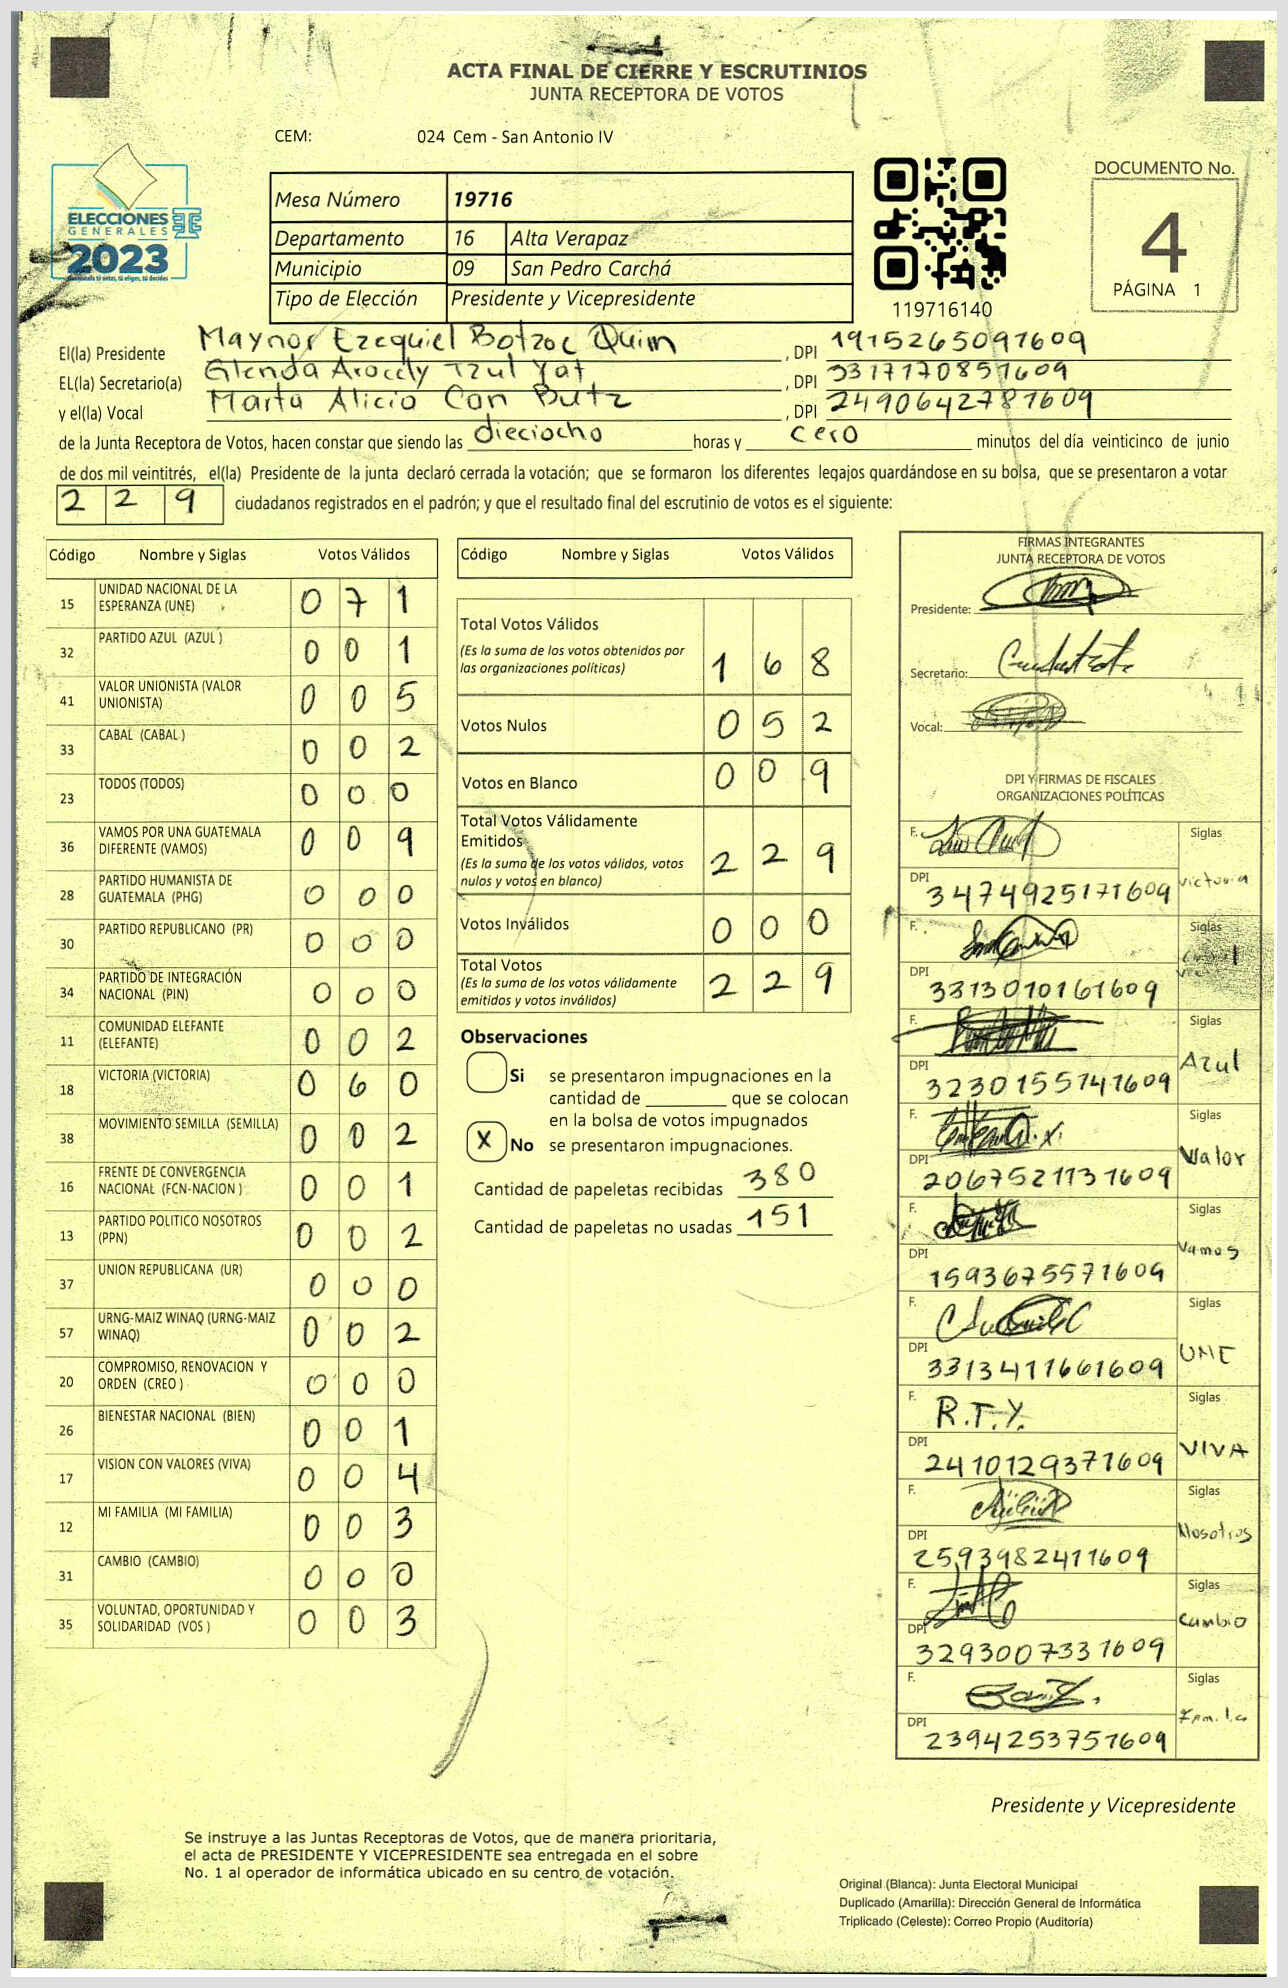 ACTA FINAL DE CIERRE Y ESCRUTINIOS
JUNTA RECEPTORA DE VOTOS
CEM: 024 Cem - San Antonio IV
ELECCIONES
GENERALES
2023
Mesa Número 19716
Departamento 16 Alta Verapaz
Municipio 09 San Pedro Carchá
Tipo de Elección Presidente y Vicepresidente
119716140
DOCUMENTO No.
4
PÁGINA 1
El(la) Presidente Maynor Ezequiel Botzoc Quim , DPI 1915265091609
EL(la) Secretario(a) Glenda Aracely Tzul Yat , DPI 3317170851609
y el(la) Vocal Marta Alicia Can Butz , DPI 2490642781609
de la Junta Receptora de Votos, hacen constar que siendo las dieciocho horas y cero minutos del día veinticinco de junio
de dos mil veintitrés, el(la) Presidente de la junta declaró cerrada la votación; que se formaron los diferentes legajos guardándose en su bolsa, que se presentaron a votar
229 ciudadanos registrados en el padrón; y que el resultado final del escrutinio de votos es el siguiente:
Código Nombre y Siglas Votos Válidos
15 UNIDAD NACIONAL DE LA ESPERANZA (UNE) 0 7 1
32 PARTIDO AZUL (AZUL ) 0 0 1
41 VALOR UNIONISTA (VALOR UNIONISTA) 0 0 5
33 CABAL (CABAL ) 0 0 2
23 TODOS (TODOS) 0 0 0
36 VAMOS POR UNA GUATEMALA DIFERENTE (VAMOS) 0 0 9
28 PARTIDO HUMANISTA DE GUATEMALA (PHG) 0 0 0
30 PARTIDO REPUBLICANO (PR) 0 0 0
34 PARTIDO DE INTEGRACIÓN NACIONAL (PIN) 0 0 0
11 COMUNIDAD ELEFANTE (ELEFANTE) 0 0 2
18 VICTORIA (VICTORIA) 0 6 0
38 MOVIMIENTO SEMILLA (SEMILLA) 0 0 2
16 FRENTE DE CONVERGENCIA NACIONAL (FCN-NACION ) 0 0 1
13 PARTIDO POLITICO NOSOTROS (PPN) 0 0 2
37 UNION REPUBLICANA (UR) 0 0 0
57 URNG-MAIZ WINAQ (URNG-MAIZ WINAQ) 0 0 2
20 COMPROMISO, RENOVACION Y ORDEN (CREO ) 0 0 0
26 BIENESTAR NACIONAL (BIEN) 0 0 1
17 VISION CON VALORES (VIVA) 0 0 4
12 MI FAMILIA (MI FAMILIA) 0 0 3
31 CAMBIO (CAMBIO) 0 0 0
35 VOLUNTAD, OPORTUNIDAD Y SOLIDARIDAD (VOS ) 0 0 3
Código Nombre y Siglas Votos Válidos
Total Votos Válidos
(Es la suma de los votos obtenidos por
las organizaciones políticas) 1 6 8
Votos Nulos 0 5 2
Votos en Blanco 0 0 9
Total Votos Válidamente
Emitidos
(Es la suma de los votos válidos, votos
nulos y votos en blanco) 2 2 9
Votos Inválidos 0 0 0
Total Votos
(Es la suma de los votos válidamente
emitidos y votos inválidos) 2 2 9
Observaciones
Si se presentaron impugnaciones en la
cantidad de ________ que se colocan
en la bolsa de votos impugnados
X No se presentaron impugnaciones.
Cantidad de papeletas recibidas 380
Cantidad de papeletas no usadas 151
FIRMAS INTEGRANTES
JUNTA RECEPTORA DE VOTOS
Presidente:
Secretario:
Vocal:
DPI Y FIRMAS DE FISCALES
ORGANIZACIONES POLÍTICAS
F. Siglas
DPI 3474925171609 Victoria
F. Siglas
DPI 3313010161609
F. Siglas
DPI 3230155741609 Azul
F. Siglas
DPI 2067521131609 Valor
F. Siglas
DPI 1593675571609 Vamos
F. Siglas
DPI 3313411661609 UNE
F. R.T.Y. Siglas
DPI 2410129371609 VIVA
F. Siglas
DPI 2593982411609 Nosotros
F. Siglas
DPI 3293007331609 Cambio
F. Siglas
DPI 2394253751609
Presidente y Vicepresidente
Se instruye a las Juntas Receptoras de Votos, que de manera prioritaria,
el acta de PRESIDENTE Y VICEPRESIDENTE sea entregada en el sobre
No. 1 al operador de informática ubicado en su centro de votación.
Original (Blanca): Junta Electoral Municipal
Duplicado (Amarilla): Dirección General de Informática
Triplicado (Celeste): Correo Propio (Auditoría)